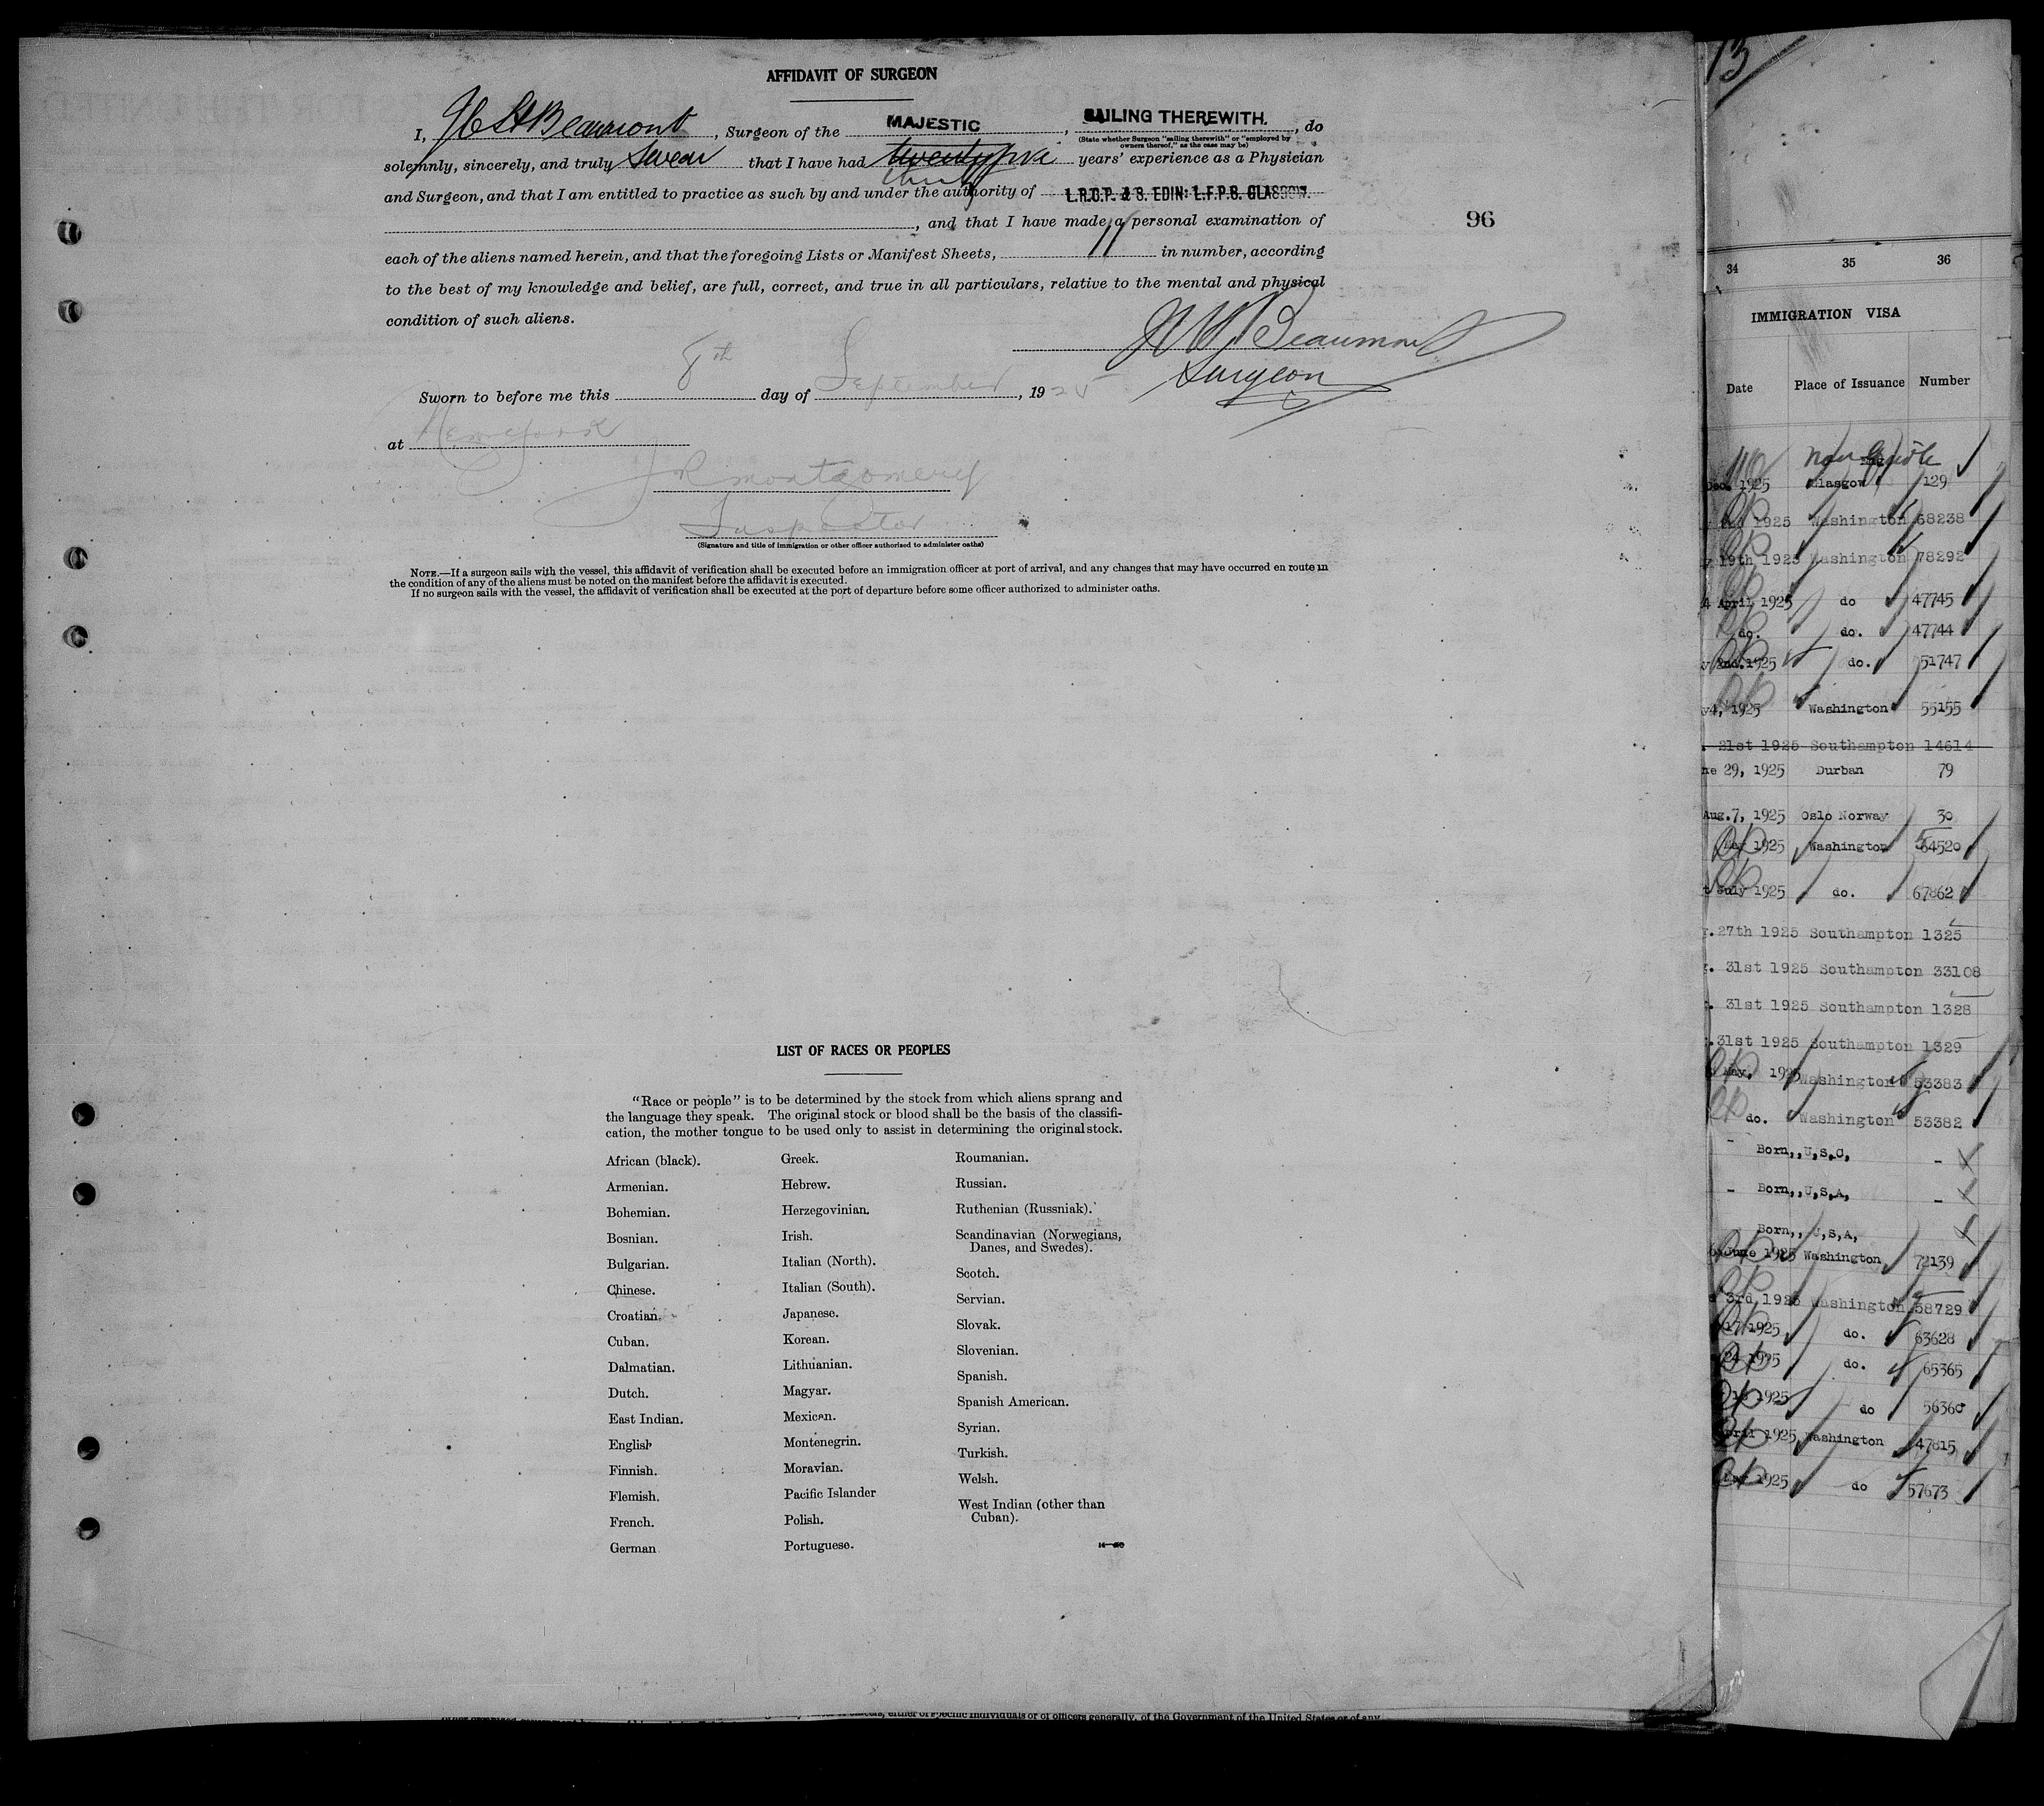 AFFIDAVIT OF SURGEON
I, Beaumont, Surgeon of the MAJESTIC, SAILING THEREWITH., do
(State whether Surgeon "sailing therewith" or "employed by
owners thereof," as the case may be)
solemnly, sincerely, and truly swear that I have had twenty five years' experience as a Physician
thirty
and Surgeon, and that I am entitled to practice as such by and under the authority of L.R.C.P. & S. EDIN: L.F.P.S. GLASGOW.
, and that I have made a personal examination of
96
each of the aliens named herein, and that the foregoing Lists or Manifest Sheets, 11 in number, according
to the best of my knowledge and belief, are full, correct, and true in all particulars, relative to the mental and physical
condition of such aliens.
Beaumont
Surgeon
Sworn to before me this 8th day of September, 1925
at New York
JR Montgomery
Inspector
(Signature and title of immigration or other officer authorized to administer oaths)
NOTE.—If a surgeon sails with the vessel, this affidavit of verification shall be executed before an immigration officer at port of arrival, and any changes that may have occurred en route in
the condition of any of the aliens must be noted on the manifest before the affidavit is executed.
If no surgeon sails with the vessel, the affidavit of verification shall be executed at the port of departure before some officer authorized to administer oaths.
LIST OF RACES OR PEOPLES
"Race or people" is to be determined by the stock from which aliens sprang and
the language they speak. The original stock or blood shall be the basis of the classifi-
cation, the mother tongue to be used only to assist in determining the original stock.
African (black).
Armenian.
Bohemian.
Bosnian.
Bulgarian.
Chinese.
Croatian.
Cuban.
Dalmatian.
Dutch.
East Indian.
English
Finnish.
Flemish.
French.
German
Greek.
Hebrew.
Herzegovinian.
Irish.
Italian (North).
Italian (South).
Japanese.
Korean.
Lithuanian.
Magyar.
Mexican.
Montenegrin.
Moravian.
Pacific Islander
Polish.
Portuguese.
Roumanian.
Russian.
Ruthenian (Russniak).
Scandinavian (Norwegians,
Danes, and Swedes).
Scotch.
Servian.
Slovak.
Slovenian.
Spanish.
Spanish American.
Syrian.
Turkish.
Welsh.
West Indian (other than
Cuban).
either of specific individuals or of officers generally, of the Government of the United States or of any
13
34 35 36
IMMIGRATION VISA
Date Place of Issuance Number
Non
Dec. 1925 Glasgow 129
1925 Washington 68238
19th 1925 Washington 78292
April 1925 do 47745
do. do. 47744
2nd. 1925 do. 51747
4, 1925 Washington 55155
21st 1925 Southampton 14614
29, 1925 Durban 79
Aug. 7, 1925 Oslo Norway 30
May 1925 Washington 64520
July 1925 do. 67862
27th 1925 Southampton 1325
31st 1925 Southampton 33108
31st 1925 Southampton 1328
31st 1925 Southampton 1329
May, 1925 Washington 53383
do. Washington 53382
- Born,,U,S,C, -
- Born,,U,S,A, -
Born,, U,S,A,
June 1925 Washington 72139
3rd 1925 Washington 58729
17 1925 do. 63628
24 1925 do. 65365
1925 do 56360
April 1925 Washington 47815
1925 do 57673